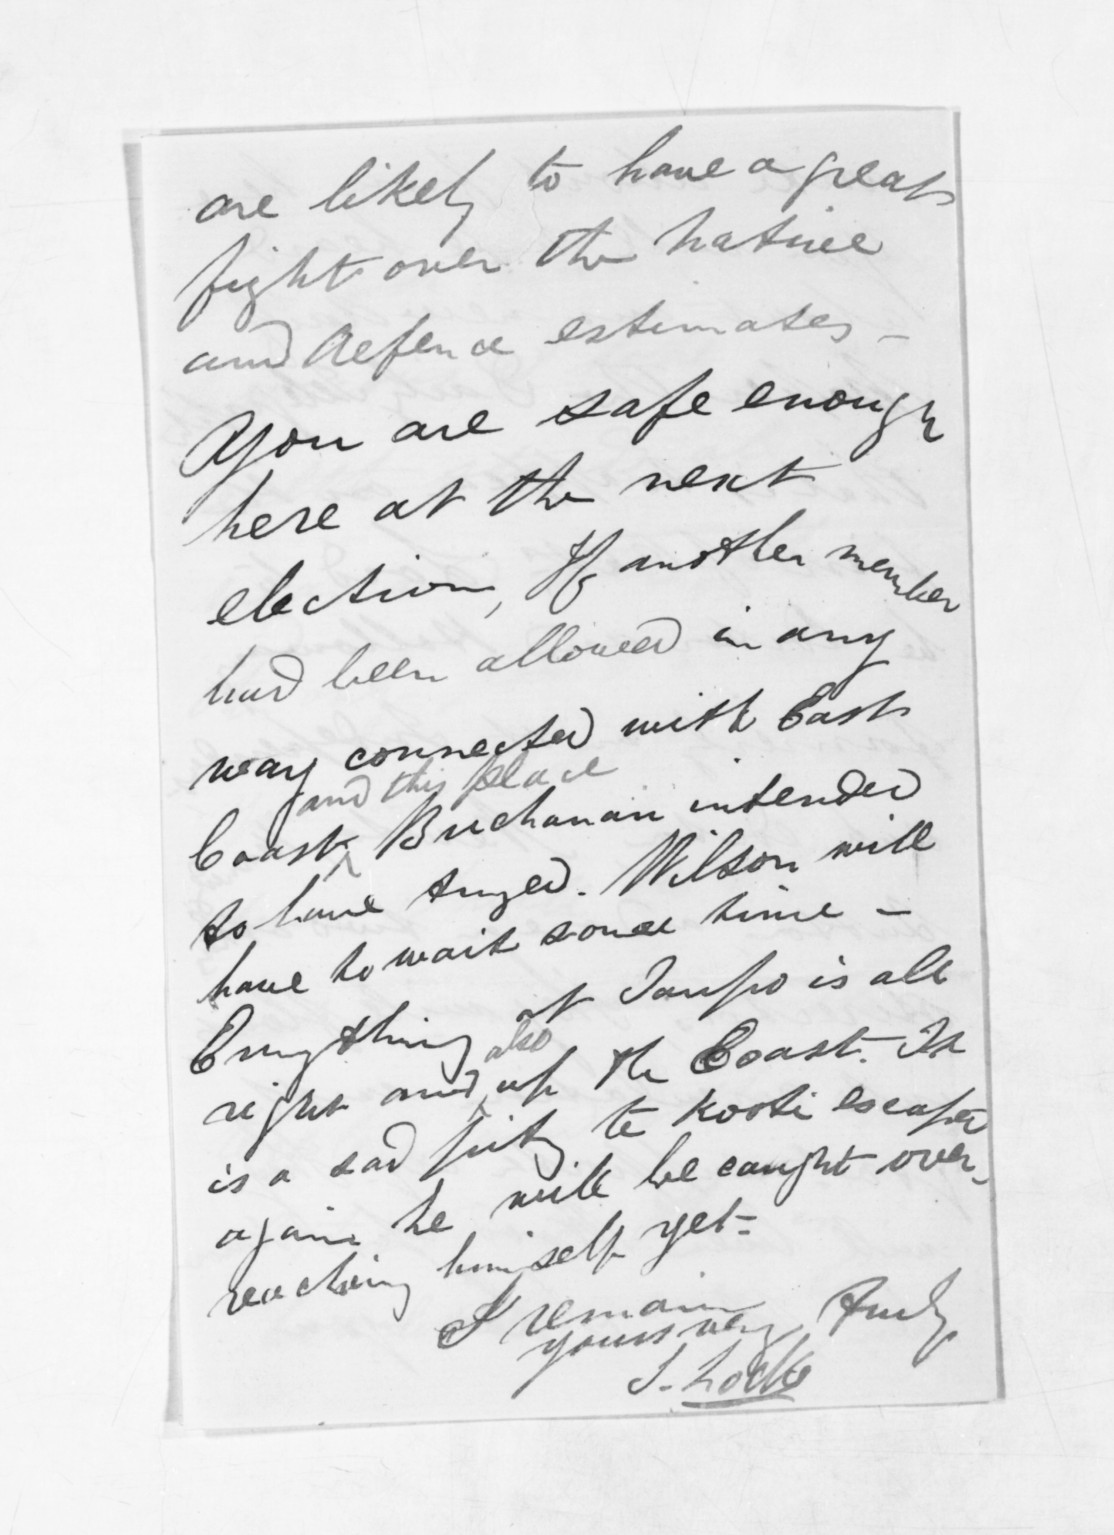 are likely to have a great
fight over the native
and defence estimates -
You are safe enough
here at the next
election, If another member
had been allowed in any
way connected with East
and this place
Coast Buchanan intended
to have tryed. Wilson will
have to wait some time -
Everything at Taupo is all
also
right and up the Coast. It
is a sad pity te Kooti escaped
again he will be caught over-
reaching himself yet -
I remain
yours very truly
S. Locke